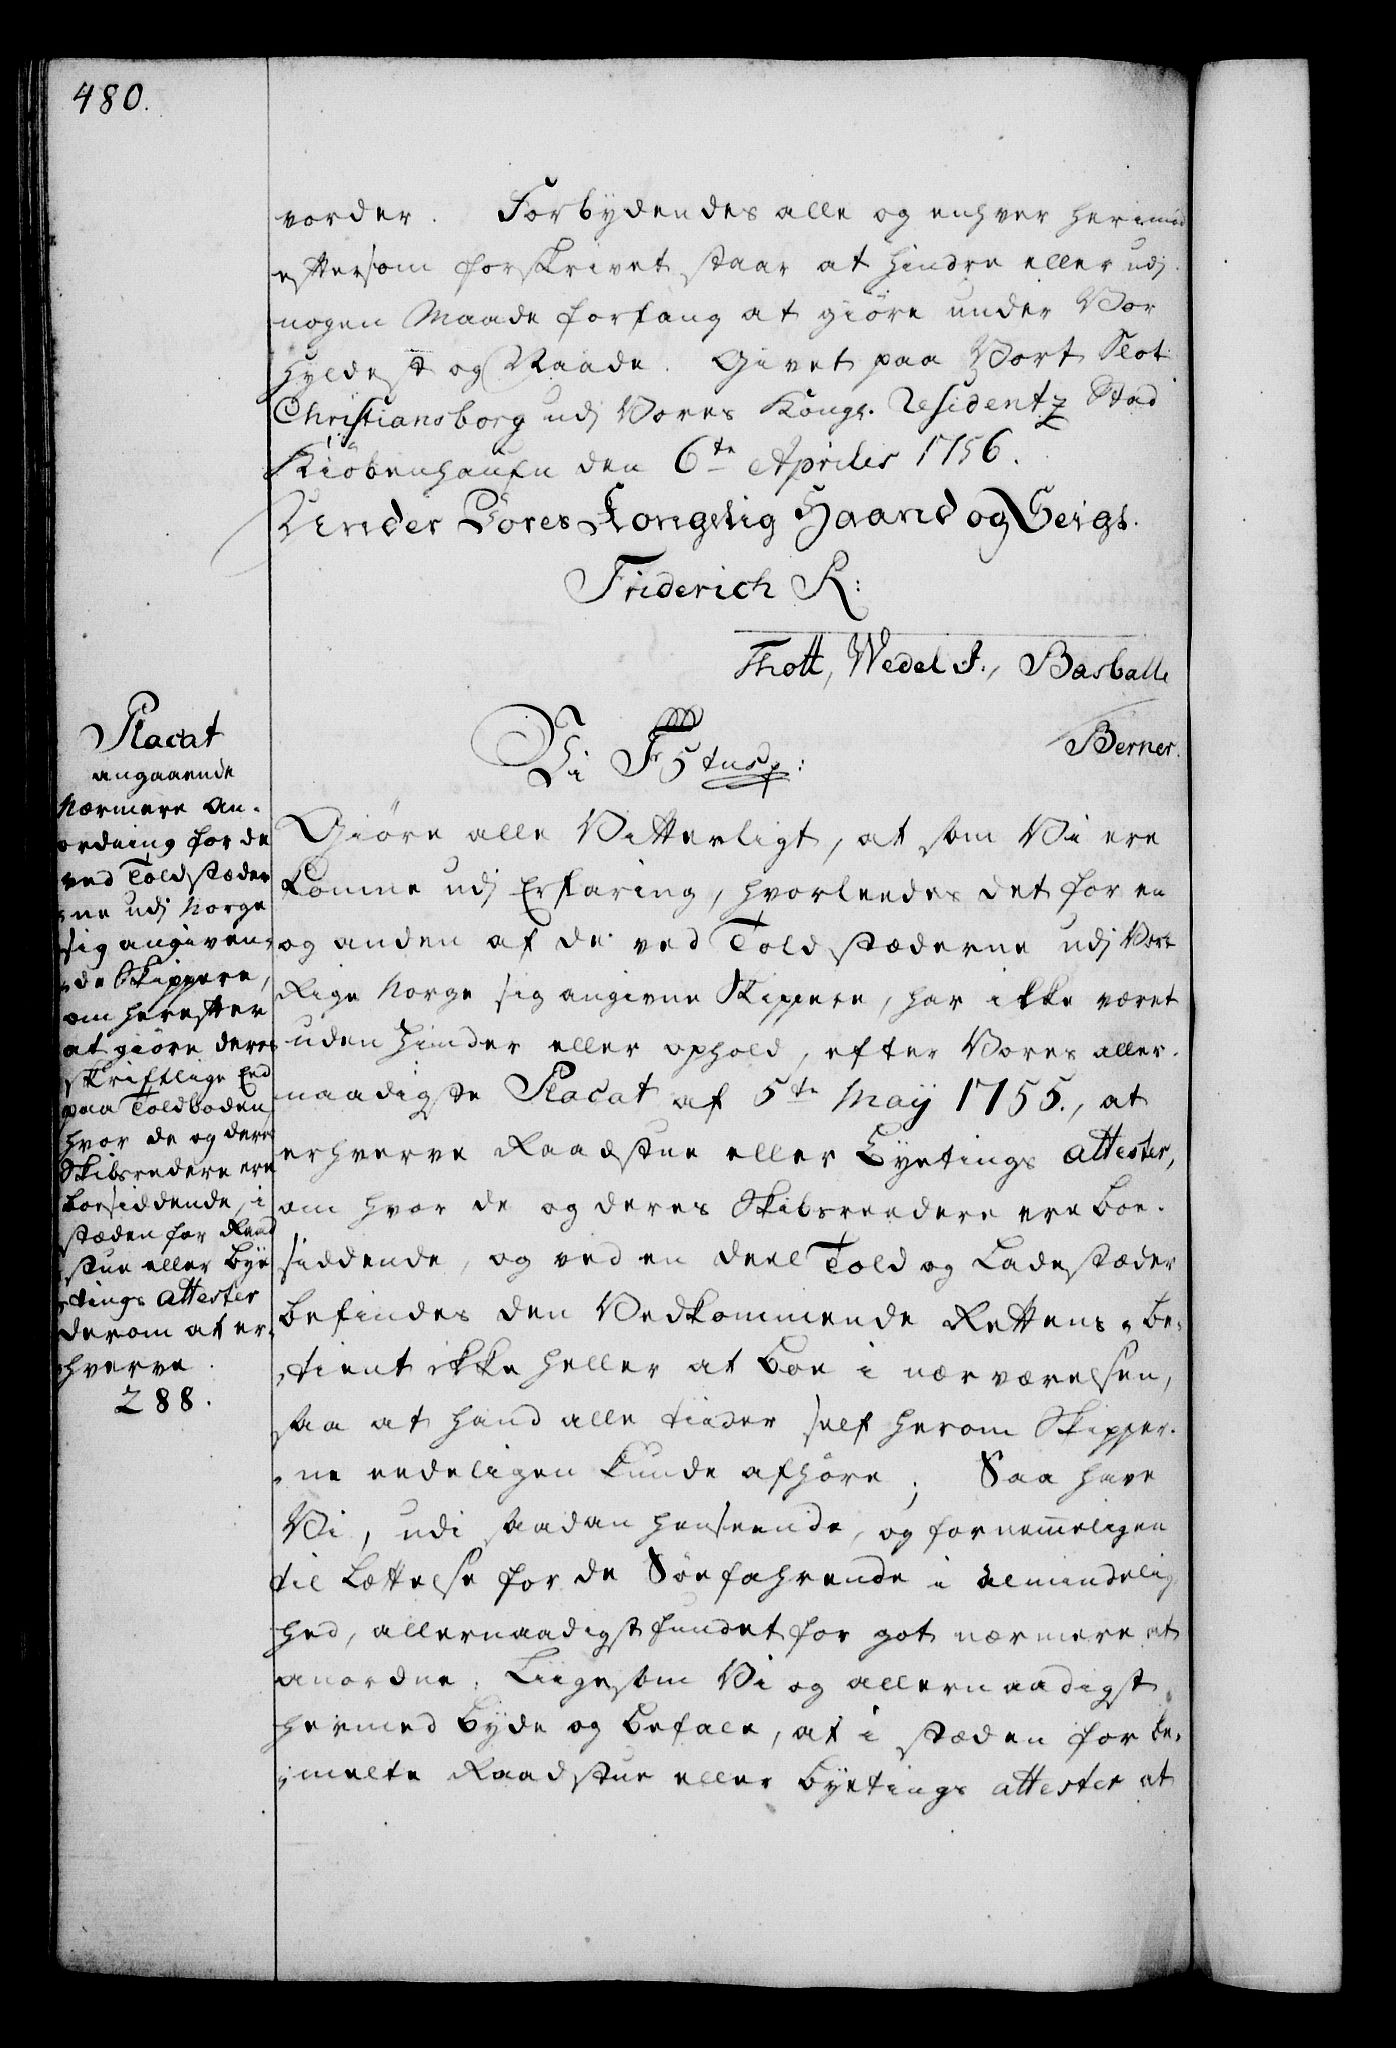 480.
vorder. Forbydendes alle og enhver herimod
eftersom forskrivet staar at hindre eller udj
nogen Maade forfang at giøre under Vor
Hyldest og Naade. Givet paa Vort Slot
Christiansborg udj Vores Kongl. Residentz Stad
Kiöbenhaufn den 6te Aprilis 1756.
Under Vores Kongelig Haand og Seigl.
Friderich R:
Thott, Wedel F., Basballe
Berner.
Placat
angaaende
Nærmere An-
ordning for de
ved Toldstæder
ne udj Norge
sig angiven-
de Skippere,
om herefter
at giöre deres
skriftlige Eed
paa Toldboden,
hvor de og deres
Skibsredere ere
boesiddende, i
stæden for Raad
stue eller Bÿe
tings attester
derom at er-
hverve.
288.
Vi Fr 5 tusp:
Giöre alle Vitterligt, at som Vi ere
komne udj Erfaring, hvorleedes det for en
og anden af de ved Toldstæderne udj Vort
Rige Norge sig angivne Skippere, har ikke været
uden hinder eller ophold, efter Vores aller-
naadigste Placat af 5te Maÿ 1755., at
erhverve Raadstue eller Bÿetings attester,
om hvor de og deres Skibsreedere ere boe-
siddende, og ved en deel Told og Ladestæder
befindes den Vedkommende Rettens be-
tient ikke heller at boe i nærværelsen,
saa at hand alle tiider self herom Skipper-
ne eedeligen kunde afhöre; Saa have
Vi, udi saadan henseende, og fornemmeligen
til Lættelse for de Söefahrende i almindelig
hed, allernaadigst fundet for got nærmere at
anordne, Liigesom Vi og allernaadigst
hermed bÿde og befale, at i stæden for be-
melte Raadstue eller bÿetings attester at